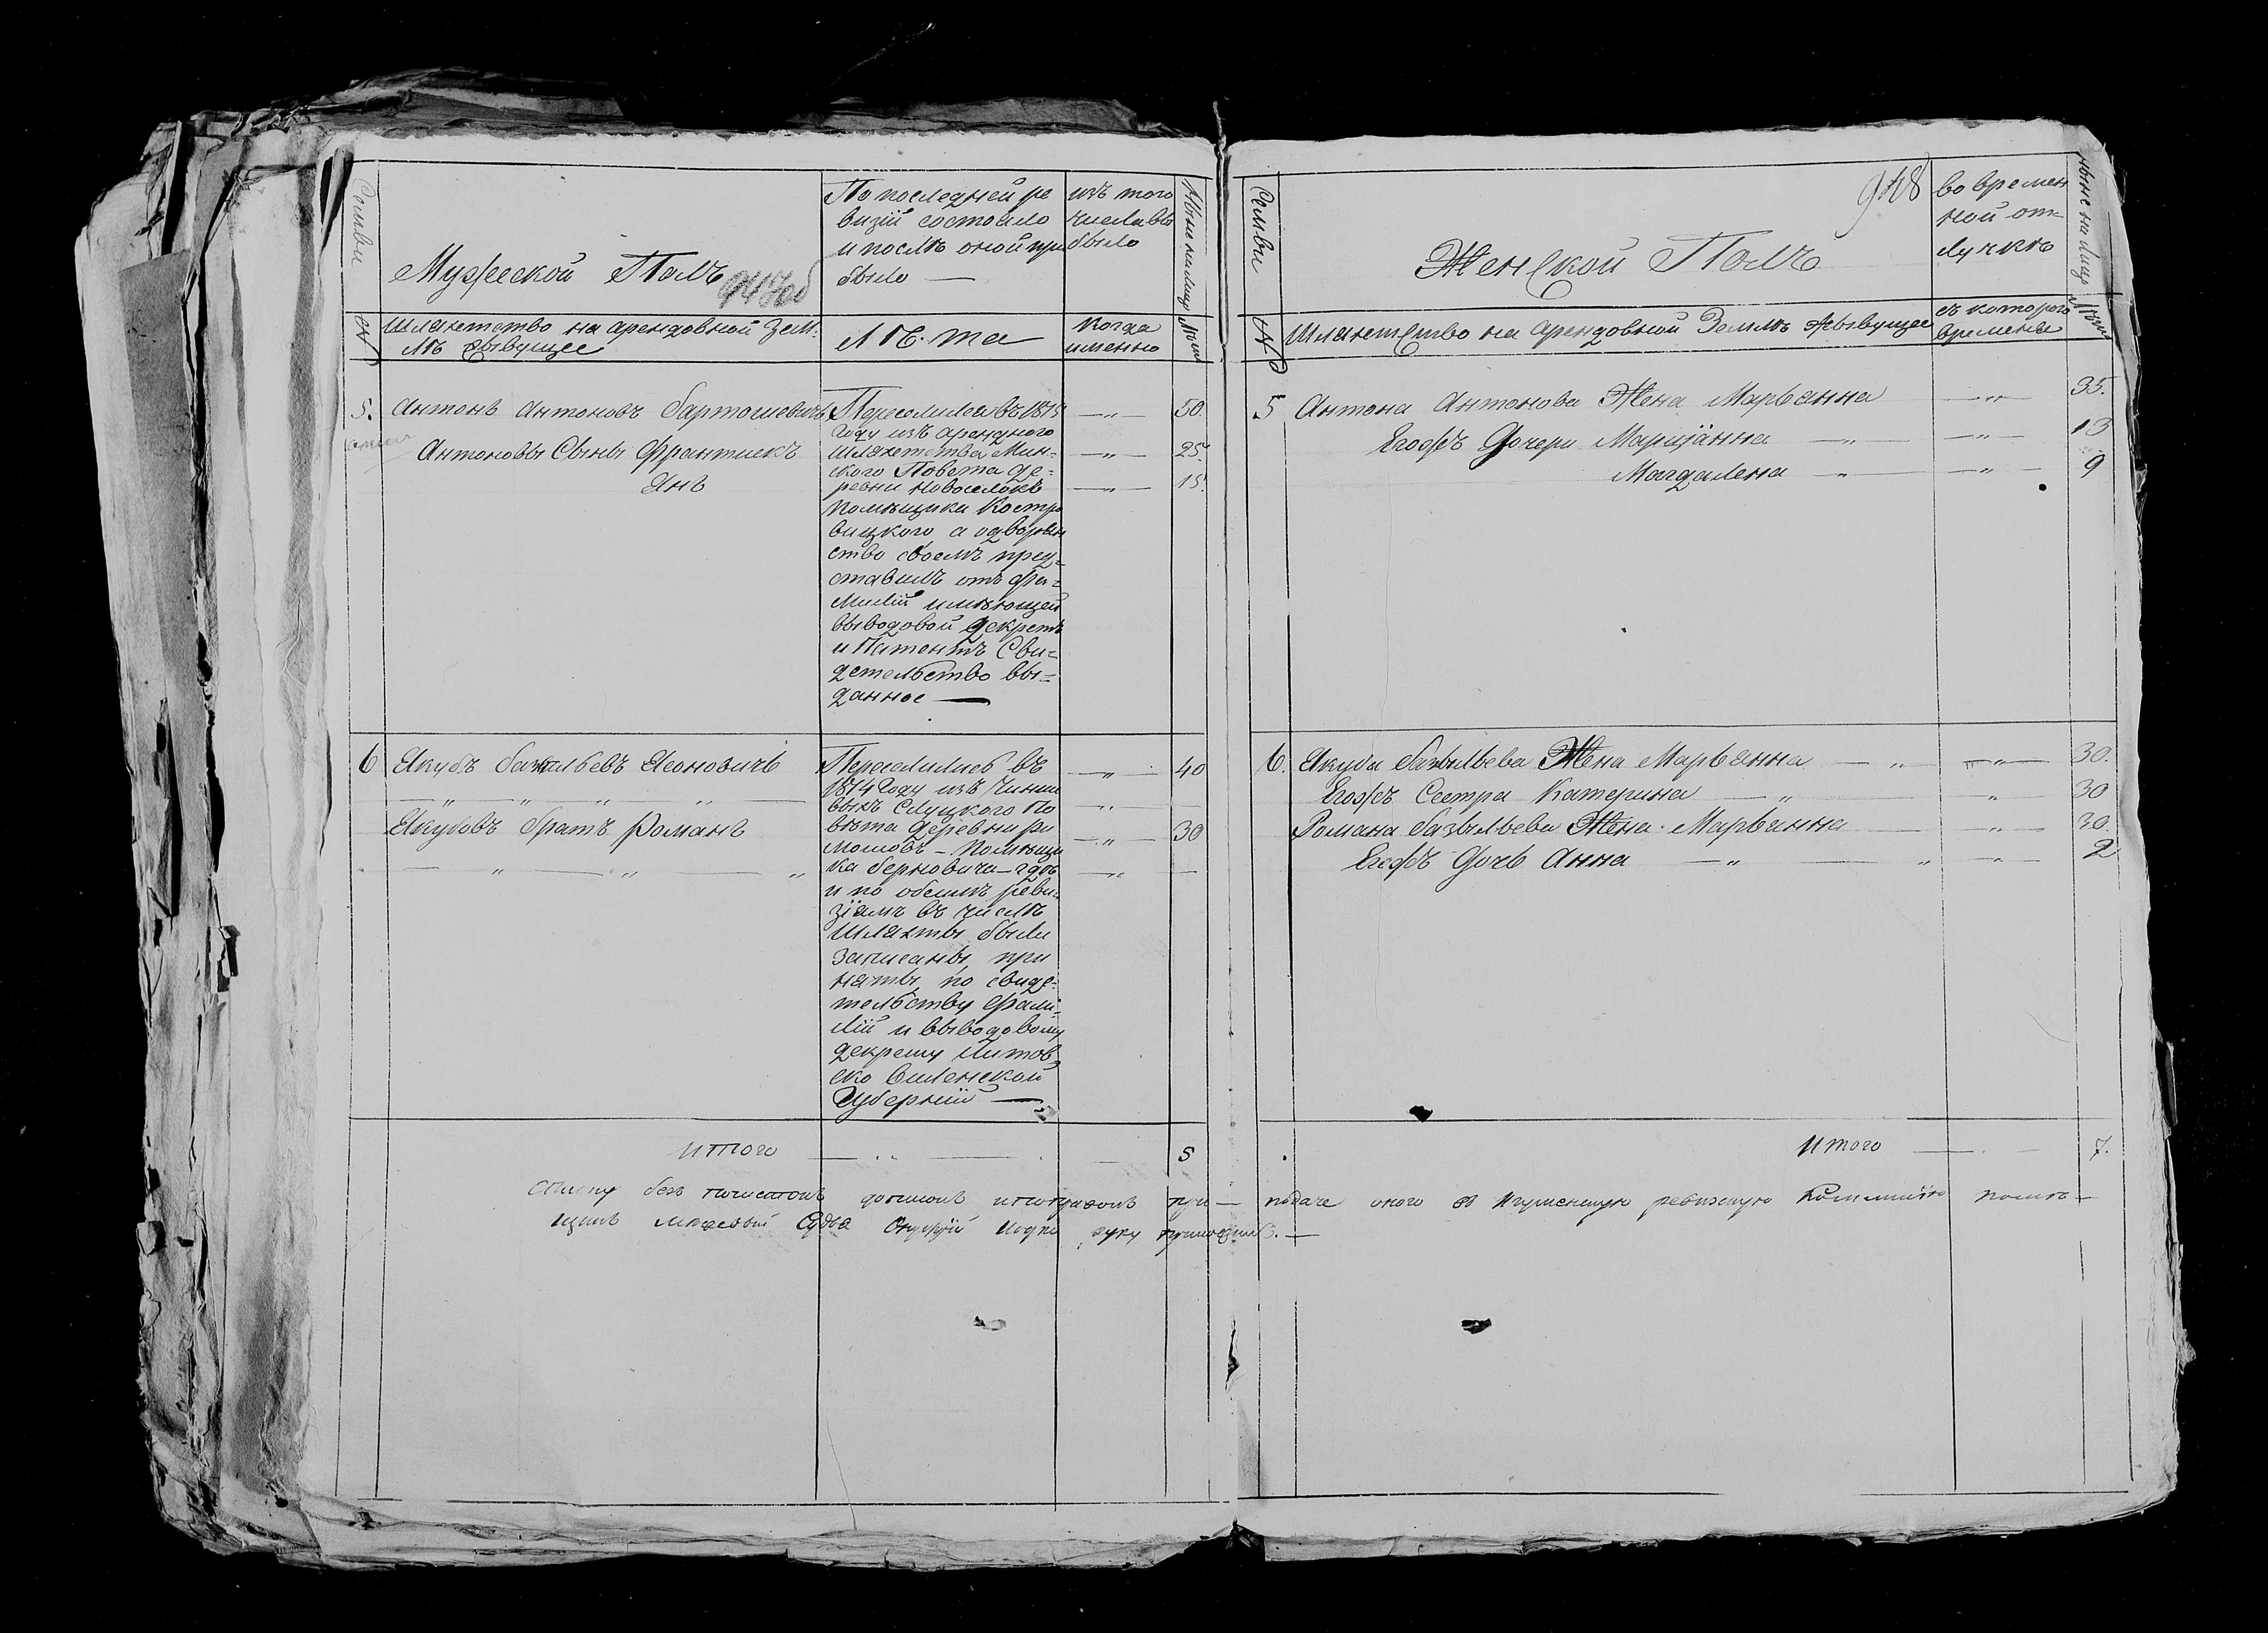 Семьи
Мужеской Полъ
По последней ре
визіи состояло
и после оной при
было —
изъ того
числа вы
было
Ныне на лицо
№
Шляхетство на арендовной зем-
лѣ живущее
Лѣта
когда
именно
Лѣта
5. Антонъ Антоновъ Бартошевичъ — „ — 50.
Антоновы Сыны Франтишекъ — „ — 25.
Янъ — „ — 15.
Переселился въ 1815
году изъ аренднаго
шляхетства Мин-
ского Повета де-
ревни Новоселокъ
помѣщика Костро
вицкого а о дворян
стве своемъ пред-
ставилъ отъ фа-
миліи имѣющей
выводовой декретъ
и Патентъ Сви-
детельство вы-
данное —
6 Якубъ Базыльевъ Леоновичъ — „ — 40
Якубовъ братъ Романъ — „ — 30
Переселились въ
1814 году изъ чинше
выхъ Слуцкого По
вѣта деревни
помѣщи
ка — где
и по обеимъ реви-
зіямъ въ числѣ
шляхты были
записаны при
няты по свиде-
тельству фами-
ліи и выводовому
декрету Литов
ско Виленской
Губерніи —
итого 5
948
Семьи
Женской Полъ
во времен
ной от-
лучкѣ
Ныне на лицо
№
Шляхетство на арендовной Землѣ живущее
съ которого
времены
Лѣта
5 Антона Антонова Жена Марьянна — „ — 35.
Егожъ Дочери Марijaнна — „ — 13
Магдалена — „ — 9
6. Якуба Базыльева Жена Марьянна — „ — 30.
Егожъ Сестра Катерина — „ — 30
Романа Базыльева Жена Марьянна — „ — 30.
Егожъ Дочь Анна — „ — 2
Итого — 7.
Списку безъ при — подаче оного въ Игуменскую ревизскую Коммиссію помѣ —
щикъ Судья руку приложилъ. —